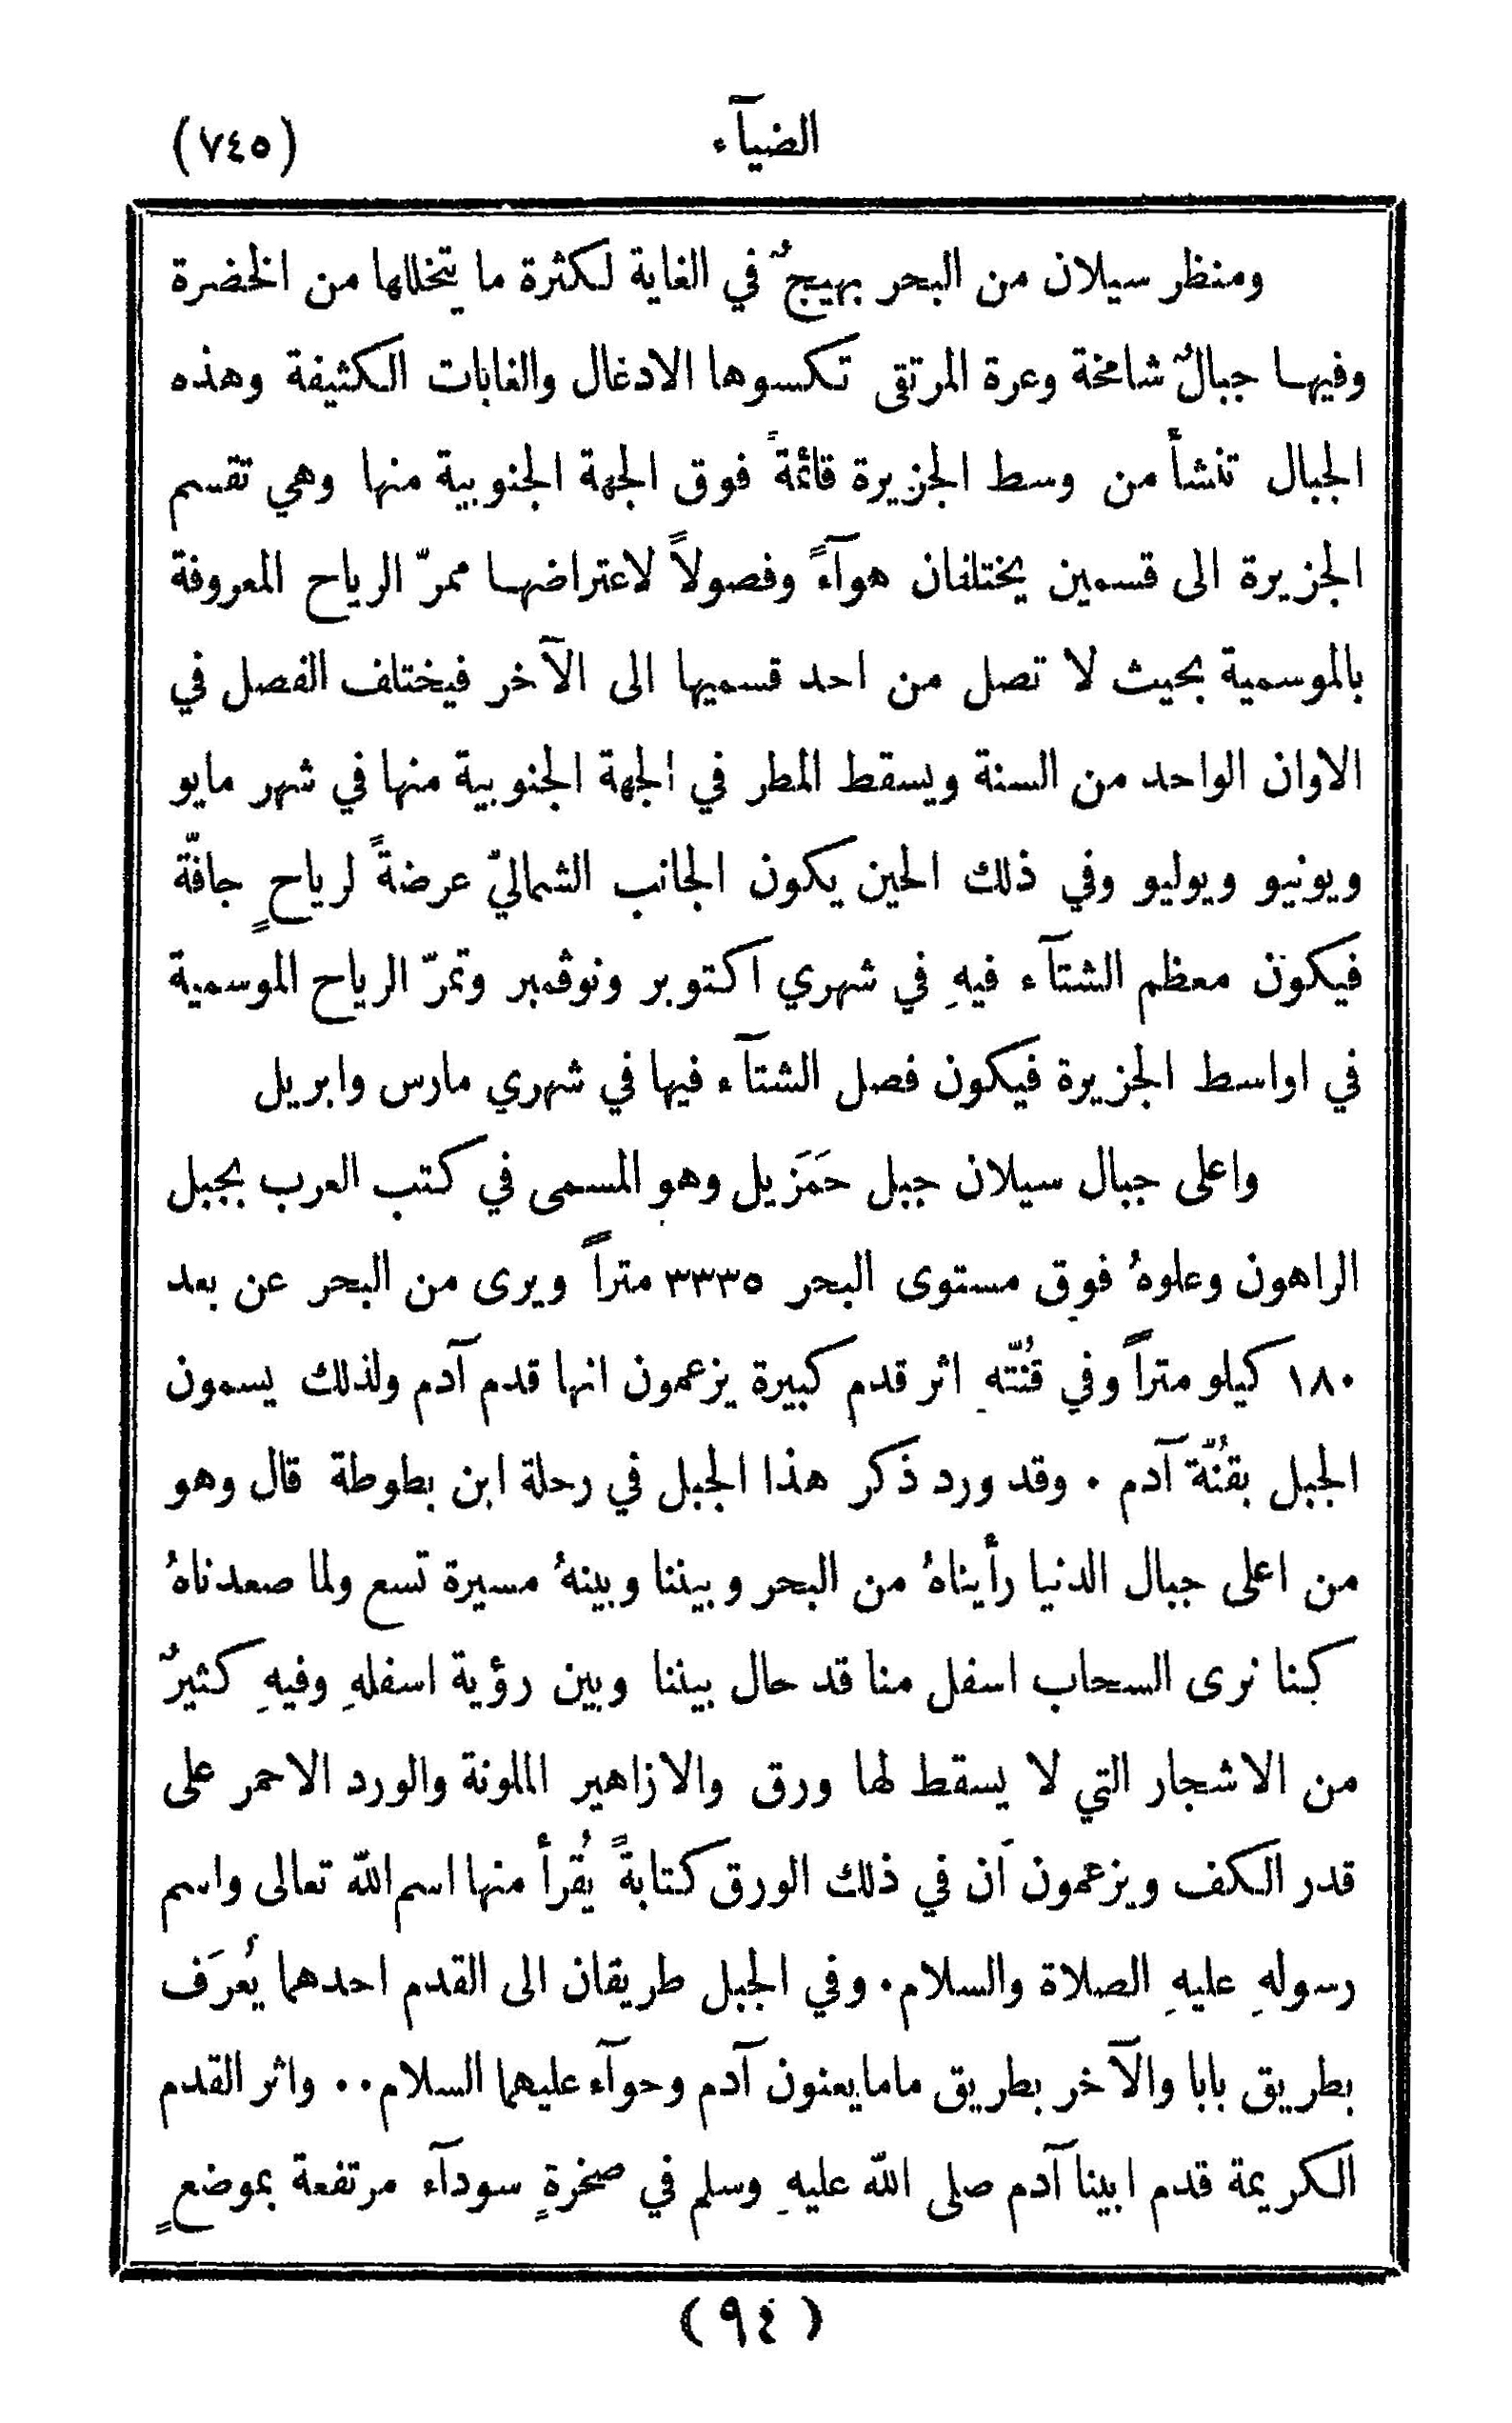 الضيآء
(٧٤٥)
ومنظر سيلان من البحر بهيجٌ في الغاية لكثرة ما يتخللها من الخضرة
وفيها جبالٌ شامخة وعرة المرتقى تكسوها الادغال والغابات الكثيفة وهذه
الجبال تنشأ من وسط الجزيرة قائمةً فوق الجهة الجنوبية منها وهي تقسم
الجزيرة الى قسمين يختلفان هوآءً وفصولاً لاعتراضها ممرّ الرياح المعروفة
بالموسمية بحيث لا تصل من احد قسميها الى الآخر فيختلف الفصل في
الاوان الواحد من السنة ويسقط المطر في الجهة الجنوبية منها في شهر مايو
ويونيو ويوليو وفي ذلك الحين يكون الجانب الشماليّ عرضةً لرياحٍ جافّة
فيكون معظم الشتآء فيهِ في شهري اكتوبر ونوڤمبر وتمرّ الرياح الموسمية
في اواسط الجزيرة فيكون فصل الشتآء فيها في شهري مارس وابريل
واعلى جبال سيلان جبل حَمَزيل وهو المسمى في كتب العرب بجبل
الراهون وعلوهُ فوق مستوى البحر ٣٣٣٥ متراً ويرى من البحر عن بعد
١٨٠ كيلو متراً وفي قُنّتهِ اثر قدم كبيرة يزعمون انها قدم آدم ولذلك يسمون
الجبل بقُنّة آدم . وقد ورد ذكر هذا الجبل في رحلة ابن بطوطة قال وهو
من اعلى جبال الدنيا رأيناهُ من البحر وبيننا وبينهُ مسيرة تسع ولما صعدناهُ
كنا نرى السحاب اسفل منا قد حال بيننا وبين رؤية اسفلهِ وفيهِ كثيرٌ
من الاشجار التي لا يسقط لها ورق والازاهير الملونة والورد الاحمر على
قدر الكف ويزعمون ان في ذلك الورق كتابةً يُقرأ منها اسم الله تعالى واسم
رسولهِ عليهِ الصلاة والسلام . وفي الجبل طريقان الى القدم احدهما يُعرَف
بطريق بابا والآخر بطريق ماما يعنون آدم وحوآء عليهما السلام .. واثر القدم
الكريمة قدم ابينا آدم صلى الله عليهِ وسلم في صخرةٍ سودآء مرتفعة بموضعٍ
(٩٤)